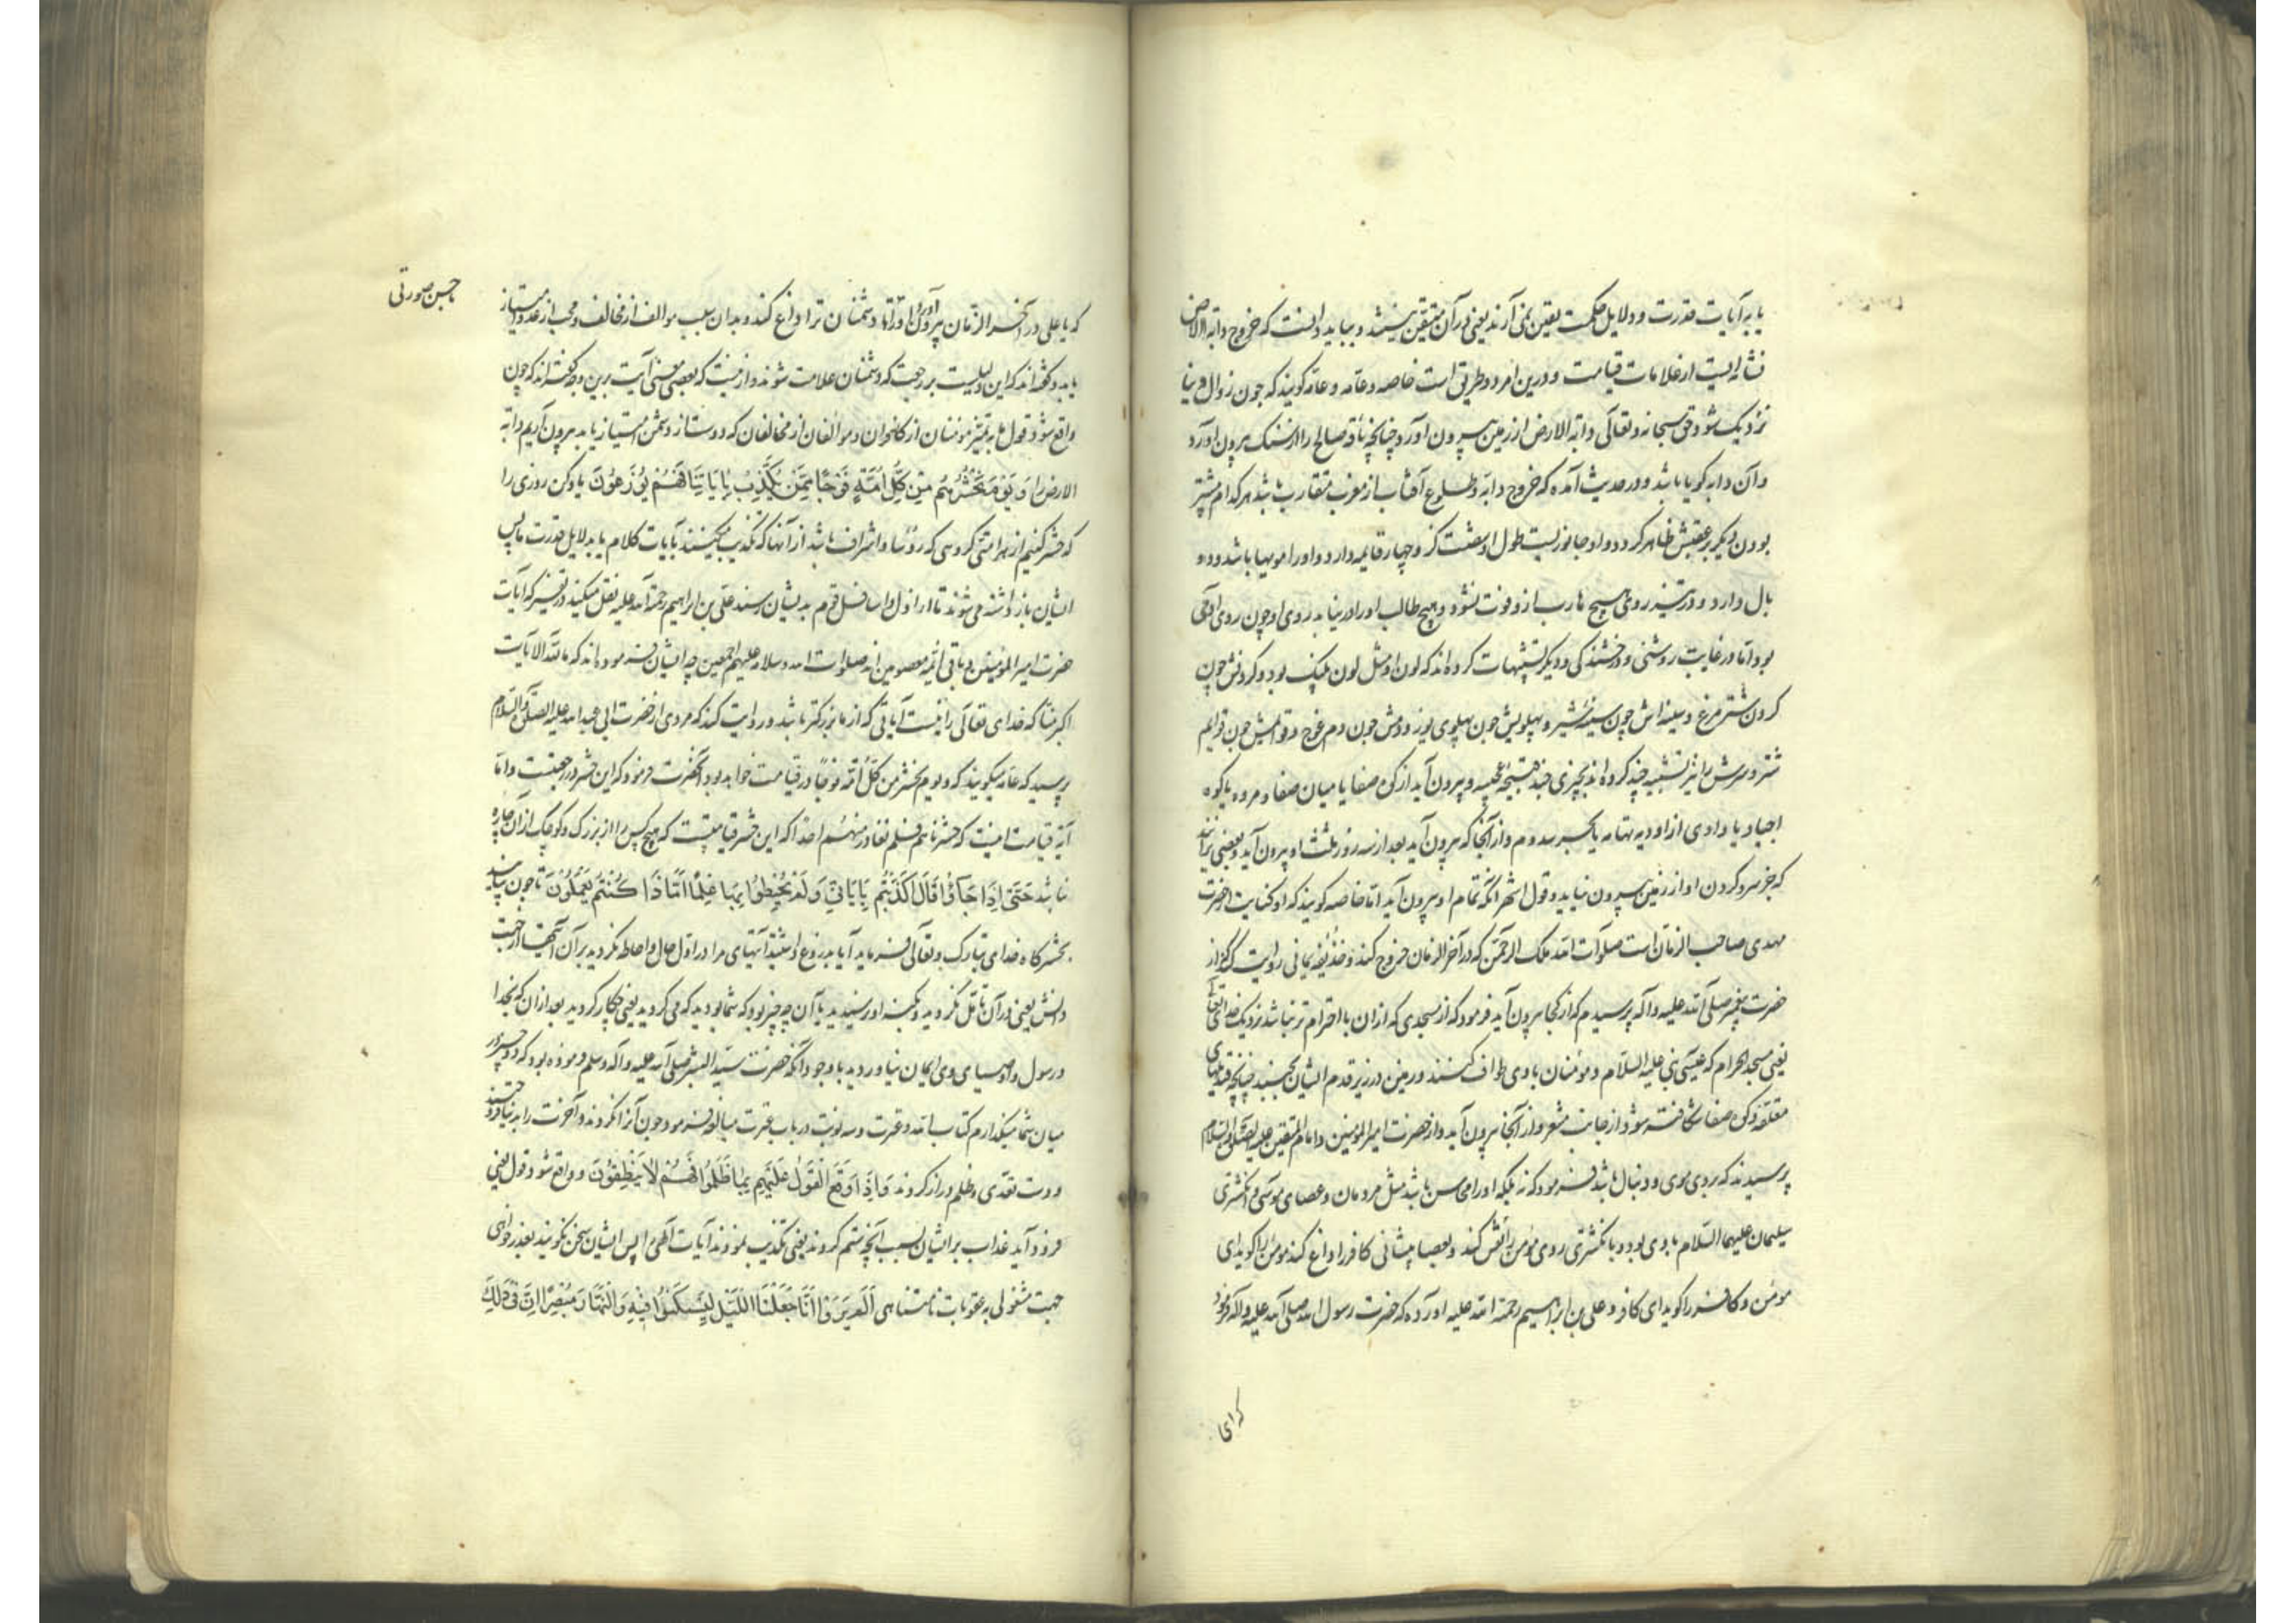 یا به آیات قدرت و دلایل حکمت یقین نمی آرند یعنی در آن متیقن نیستند و بباید دانست که خروج دابه الارض
نشانه ایست از علامات قیامت و درین امر دو طریق است خاصه و عامه و عامه گویند که چون زوال دنیا
نزدیک شود حق سبحانه و تعالی دابه الارض از زمین بیرون آورد چنانچه ناقه صالح را از سنک بیرون آورد
و آن دابه کویا باشد و در حدیث آمده که خروج دابه و طلوع آفتاب از مغرب متقارب باشد هر کدام پیشتر
بود آن دیکر بر عقبش ظاهر کردد و او جانوریست طول او شصت کز و چهار قایمه دارد و او را مویها باشد و دو
بال دارد و در تیز روی هیچ هارب ازو فوت نشود و هیچ طالب او را در نیابد روی او چون روی آدمی
بود اما در غایت روشنی و درخشندکی و دیکر تشبیهات کرده اند که لون او مثل لون پلنک بود و کردنش چون
کردن شتر مرغ و سینه اش چون سینه شیر و پهلویش چون پهلوی یوز و دمش چون دم غوچ و قوایمش چون قوایم
شتر و سرش را نیز تشبیه چند کرده اند بچیزی چند عجیبه و بیرون آید از کوه صفا یا میان صفا و مروه یا کوه
اجیاد یا وادی از اودیه تهامه یا بحر سدوم و از آنجا که بیرون آید بعد از سه روز ثلث او بیرون آید و بعضی برانند
که جز سر و کردن او از زمین بیرون نیاید و قول اشهر آنکه تمام او بیرون آید اما خاصه کویند که او کنایت از حضرت
مهدی صاحب الزمان است صلوات الله ملک الرحمن که در آخر الزمان خروج کند و حذیفه یمانی روایت کرد از
حضرت پیغمبر صلی الله علیه و اله پرسیدم که از کجا بیرون آید فرمود که از مسجدی که از آن با احترام تر نباشد نزدیک خدای تعالی
یعنی مسجد الحرام که عیسی نبی علیه السلام و مومنان با وی طواف کنند و زمین در زیر قدم ایشان بجنبد چنانچه قندیلهای
معلقه و کوه صفا شکافته شود از جانب مشعر و از آنجا بیرون آید و از حضرت امیر المومنین و امام المتقین علیه الصلوة و السلام
پرسیدند که بر وی موی و دنبال باشد فرمود که نه بلکه او را محاسن باشد مثل مردمان و عصای موسی و انکشتری
سلیمان علیهما السلام با وی بود و با نکشتری روی مومن را نقش کند و بعصا پیشانی کافر را داغ کند مومن را کوید ای
مومن و کافر را کوید ای کافر و علی بن ابراهیم رحمة الله علیه آورده که حضرت رسول الله صلی الله علیه و اله فرمود
که ای
با حسن صورتی
که یا علی در آخر الزمان بیرون آورد ترا و دشمنان ترا داغ کند و بدان سبب موالف از مخالف و محب از عدو امتیاز
یابد و کفته اند که این دلیلست بر رجعت که دشمنان علامت شوند و ازینست که بعضی معنی آیت برین وجه کفته اند که چون
واقع شود قول ما به تمییز مومنان از کافران و موالفان از مخالفان که دوست از دشمن امتیاز یابد بیرون آریم دابه
الارض را وَيَوْمَ نَحْشُرُ مِنْ كُلِّ اُمَّةٍ فَوْجًا مِمَّنْ يُكَذِّبُ بِاٰيَاتِنَا فَهُمْ يُوزَعُونَ یاد کن روزی را
که حشر کنیم از هر امتی کروهی که رؤسا و اشراف باشد از آنها که تکذیب میکنند بآیات کلام یا بدلایل قدرت ما پس
ایشان باز داشته می شوند تا اراذل و اسافل قوم بدیشان رسند علی بن ابراهیم رحمة الله علیه نقل میکند در تفسیر که آیات
حضرت امیر المؤمنین و باقی ائمه معصومین اند صلوات الله و سلامه علیهم اجمعین چه ایشان فرموده اند که ما لله الایات
اکبر منا که خدای تعالی را نیست آیاتی که از ما بزرکتر باشد و روایت کند که مردی از حضرت ابی عبد الله علیه الصلوة و السلام
پرسید که عامه میکویند که و یوم نحشر من کل امة فوجا در قیامت خواهد بود آنحضرت فرمود که این حشر در رجعتست و اما
آیه قیامت اینست که حشرناهم فلم نغادر منهم احدا که این حشر قیامتست که هیچ کس را از بزرک و کوچک از آن چاره
نباشد حَتّٰى اِذَا جَاؤُا قَالَ اَكَذَّبْتُمْ بِاٰيَاتِي وَلَمْ تُحِيطُوا بِهَا عِلْمًا اَمَّاذَا كُنْتُمْ تَعْمَلُونَ تا چون بیایند
بحشرکاه خدای تبارک و تعالی فرماید آیا بدروغ داشتید آیتهای مرا در اول حال و احاطه نکردید بر آن آیتها از جهت
دانش یعنی در آن تامل نکردید و بکنه او نرسیدید یا آن چه چیز بود که شما بودید که می کردید یعنی چکار کردید بعد از آن که بخدا
و رسول و اوصیای وی ایمان نیاوردید با وجود آنکه حضرت سید البشر صلی الله علیه و آله و سلم فرموده بود که دو چیز در
میان شما میکذارم کتاب الله و عترت و سه نوبت در باب عترت مبالغه فرمود چون آنرا کردند و آخرت را به دنیا فروختند
و دست تعدی و ظلم دراز کردند وَاِذَا وَقَعَ الْقَوْلُ عَلَيْهِمْ بِمَا ظَلَمُوا فَهُمْ لَا يَنْطِقُونَ و واقع شود قول یعنی
فرود آید عذاب بر ایشان بسبب آنچه ستم کردند یعنی تکذیب نمودند آیات الهی را پس ایشان سخن نکویند بعذر خواهی
جهت مشغولی به عقوبات نامتناهی اَلَمْ يَرَوْا اَنَّا جَعَلْنَا اللَّيْلَ لِيَسْكُنُوا فِيهِ وَالنَّهَارَ مُبْصِرًا اِنَّ فِي ذٰلِكَ